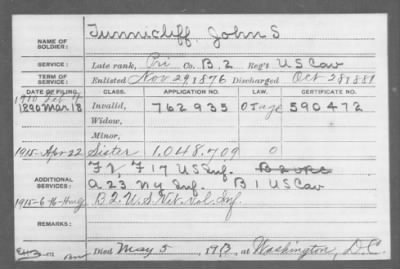 NAME OF SOLDIER: Tunnicliff, John S
SERVICE: Late rank, Pri Co. B, 2 Reg't US Cav
TERM OF SERVICE: Enlisted Nov 29 1876 Discharged Oct 28 1881
DATE OF FILING. CLASS. APPLICATION NO. LAW. CERTIFICATE NO.
1910
1890 Mar 18 Invalid, 762935 590472
Widow,
Minor,
1915-Apr 22 Sister 1,048,709 0
F2, F17 US Inf.
ADDITIONAL SERVICES: A 23 NY Inf. B 1 US Cav
B2. U.S. Vet. Vol. Inf.
REMARKS:
Died May 5 191 , at Washington, D.C.